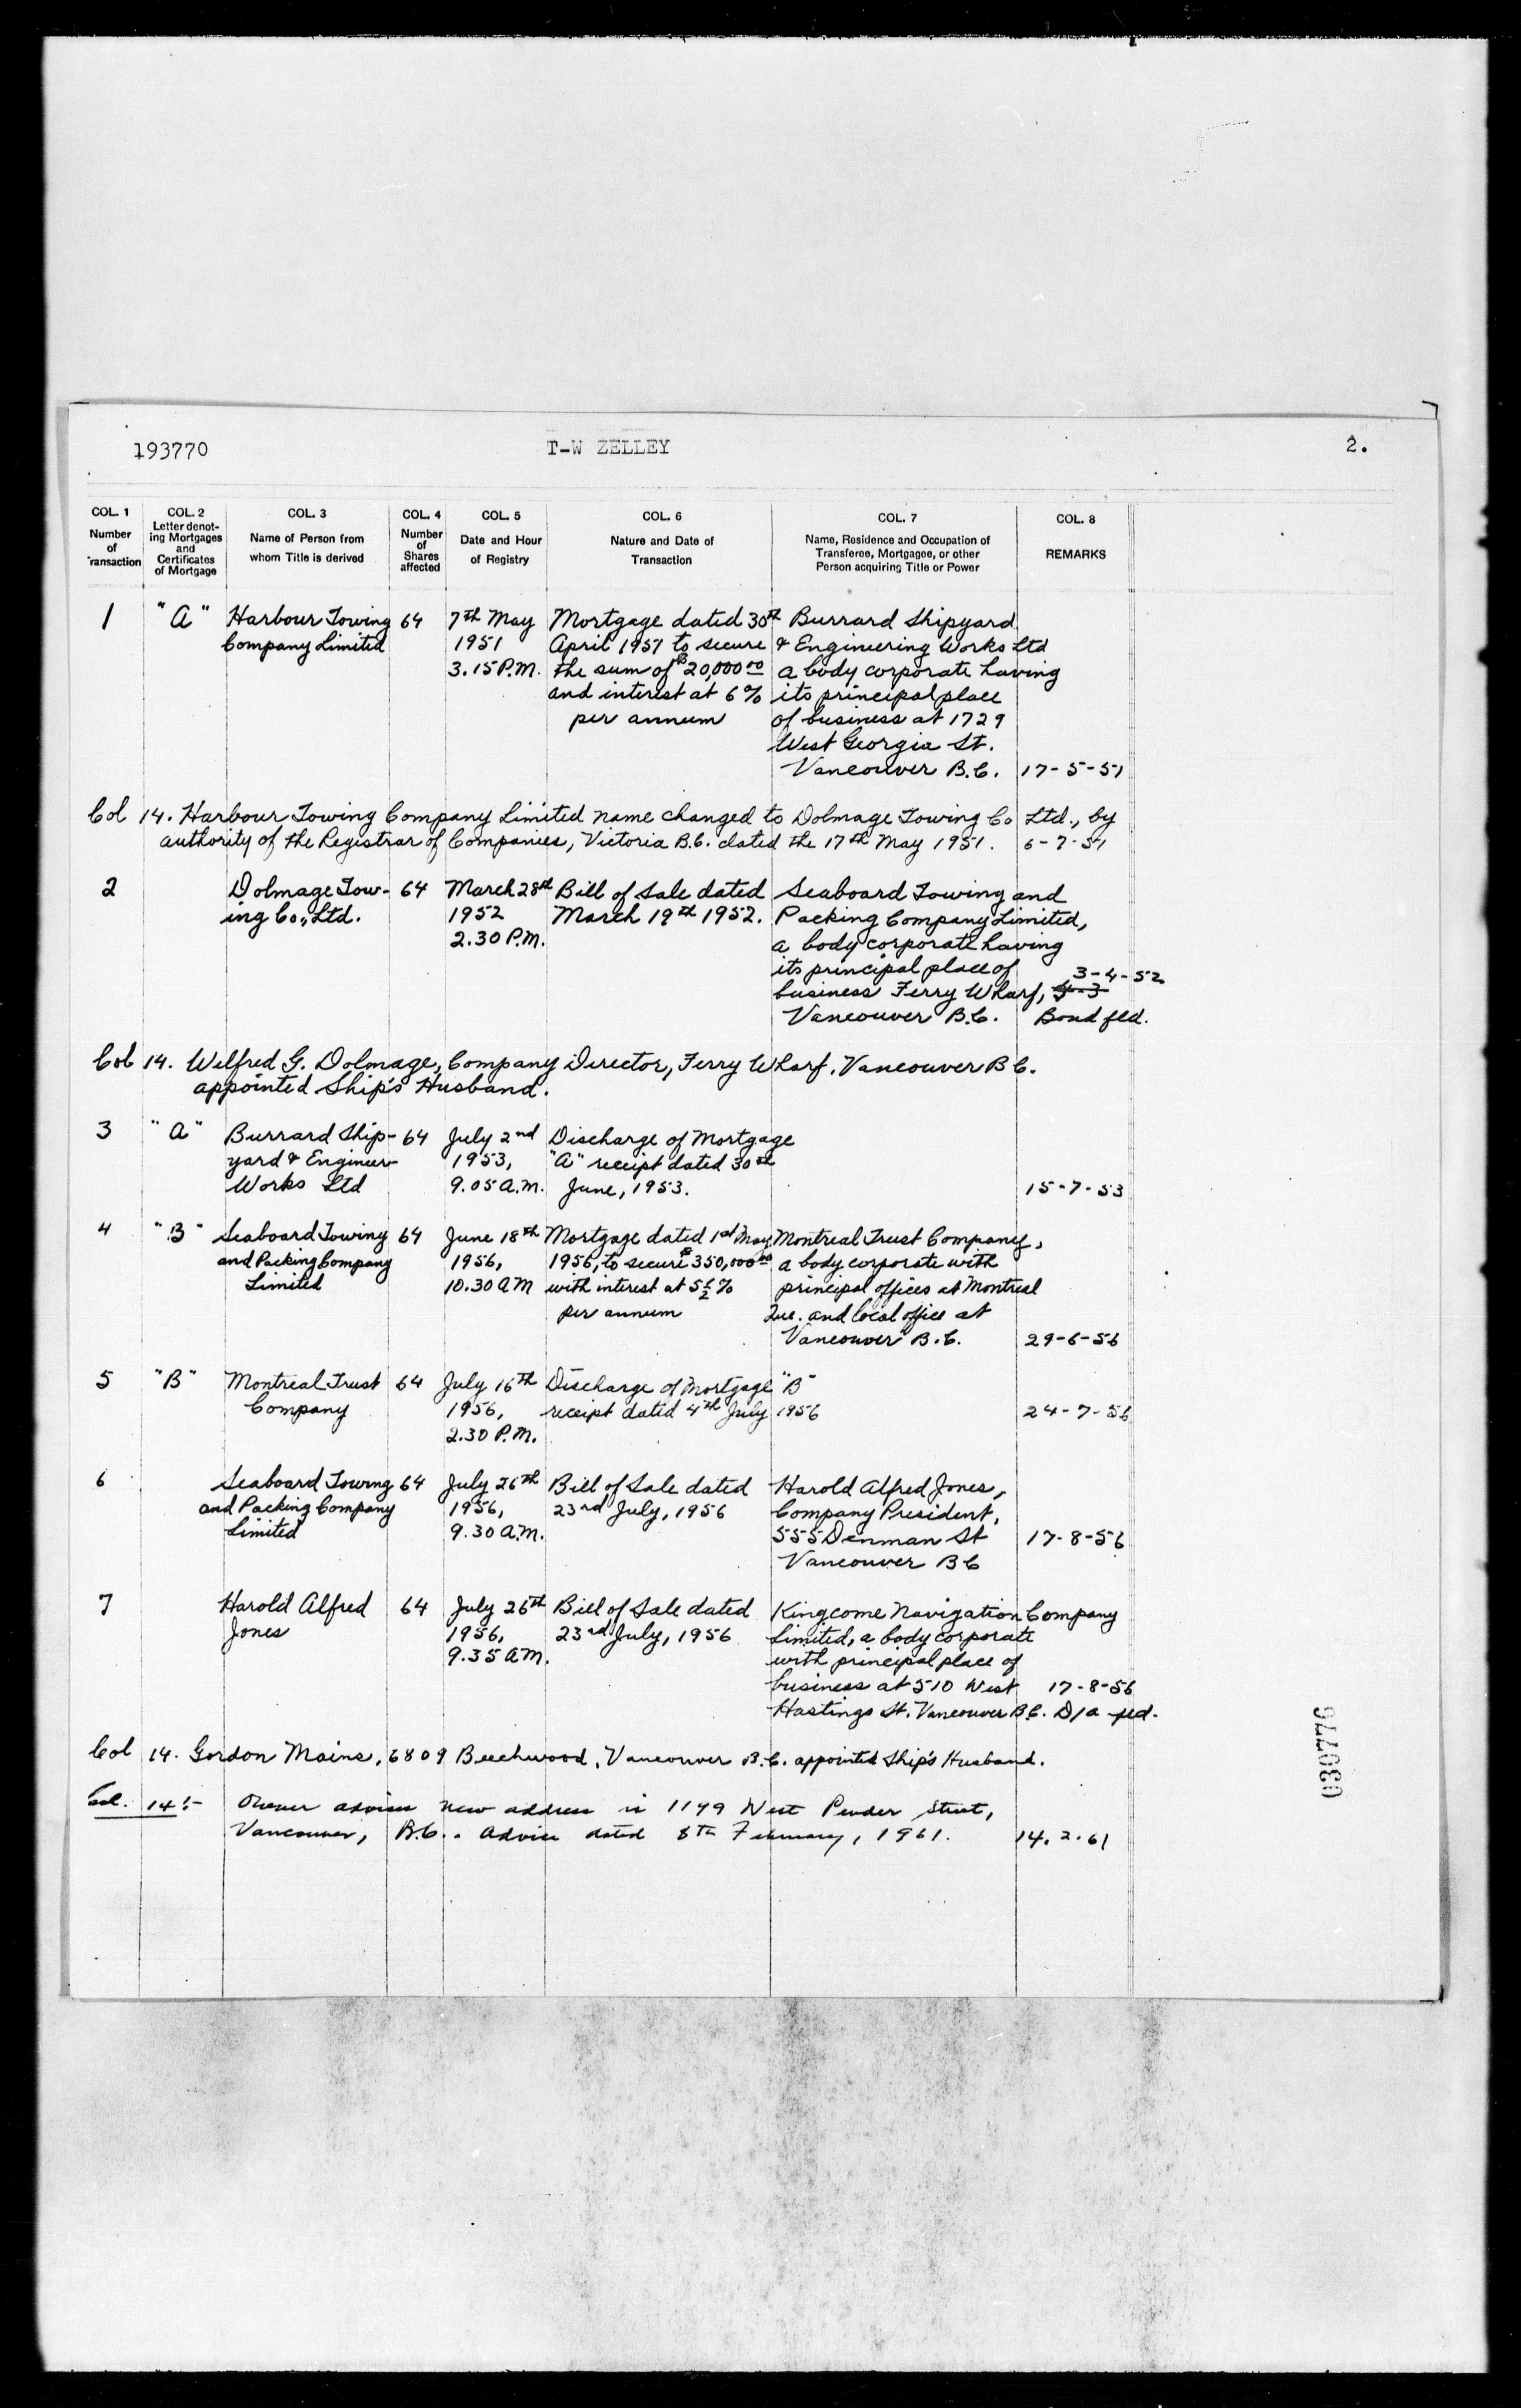 193770 T-W ZELLEY 2.
COL. 1 Number of ransaction
COL. 2 Letter denot-ing Mortgages and Certificates of Mortgage
COL. 3 Name of Person from whom Title is derived
COL. 4 Number of Shares affected
COL. 5 Date and Hour of Registry
COL. 6 Nature and Date of Transaction
COL. 7 Name, Residence and Occupation of Transferee, Mortgagee, or other Person acquiring Title or Power
COL. 8 REMARKS
1 "A" Harbour Towing 64 7th May Mortgage dated 30th Burrard Shipyard
Company Limited 1951 April 1951 to secure & Engineering Works Ltd
3.15 P.M. the sum of $20,000.00 a body corporate having
and interest at 6% its principal place
per annum of business at 1729
West Georgia St.
Vancouver B.C. 17-5-51
Col 14. Harbour Towing Company Limited name changed to Dolmage Towing Co Ltd., by
authority of the Registrar of Companies, Victoria B.C. dated the 17th May 1951. 6-7-51
2 Dolmage Tow- 64 March 28th Bill of Sale dated Seaboard Towing and
ing Co., Ltd. 1952 March 19th 1952. Packing Company Limited,
2.30 P.M. a body corporate having
its principal place of 3-4-52
business Ferry Wharf,
Vancouver B.C. Bond fld.
Col 14. Wilfred G. Dolmage, Company Director, Ferry Wharf, Vancouver B C.
appointed Ship's Husband.
3 "A" Burrard Ship- 64 July 2nd Discharge of Mortgage
yard & Engineer 1953, "A" receipt dated 30th
Works Ltd 9.05 A.M. June, 1953. 15-7-53
4 "B" Seaboard Towing 64 June 18th Mortgage dated 1st May Montreal Trust Company,
and Packing Company 1956, 1956, to secure $350,000.00 a body corporate with
Limited 10.30 AM with interest at 5½% principal offices at Montreal
per annum Que. and local office at
Vancouver B.C. 29-6-56
5 "B" Montreal Trust 64 July 16th Discharge of Mortgage "B"
Company 1956, receipt dated 4th July 1956 24-7-56
2.30 P.M.
6 Seaboard Towing 64 July 26th Bill of Sale dated Harold Alfred Jones,
and Packing Company 1956, 23rd July, 1956 Company President,
Limited 9.30 A.M. 555 Denman St 17-8-56
Vancouver B C
7 Harold Alfred 64 July 26th Bill of Sale dated Kingcome Navigation Company
Jones 1956, 23rd July, 1956 Limited, a body corporate
9.35 AM. with principal place of
business at 510 West 17-8-56
Hastings St. Vancouver B.C. D/a fld.
Col 14. Gordon Mains, 6809 Beechwood, Vancouver B.C. appointed Ship's Husband.
Col. 14:- Owner advises new address is 1199 West Pender Street,
Vancouver, B.C.. Advice dated 8th February, 1961. 14.2.61
030776